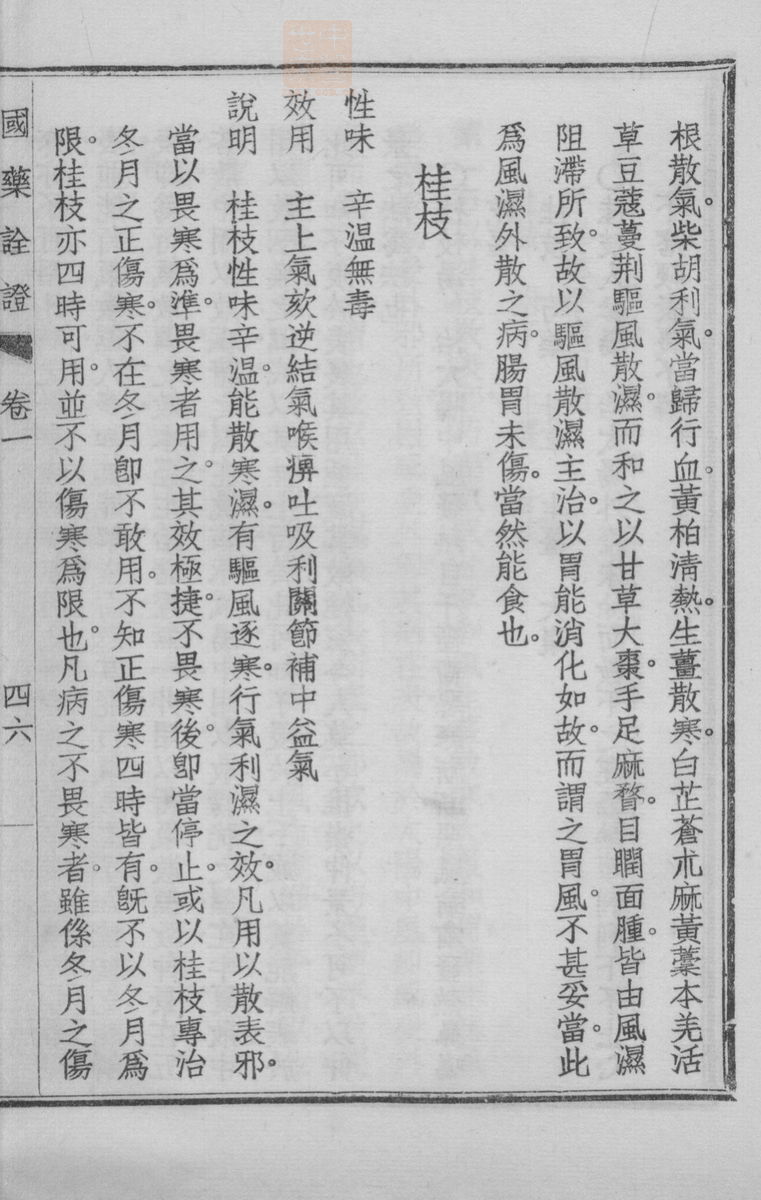 根散氣。柴胡利氣。當歸行血。黃柏淸熱。生薑散寒。白芷蒼朮麻黃藁本羌活
草豆蔻蔓荆驅風散濕。而和之以甘草大棗。手足麻瞀。目瞤面腫。皆由風濕
阻滯所致。故以驅風散濕主治。以胃能消化如故。而謂之胃風。不甚妥當。此
爲風濕外散之病。腸胃未傷。當然能食也。
桂枝
性味　辛溫無毒
效用　主上氣欬逆結氣喉痹吐吸利關節補中益氣
說明　桂枝性味辛溫。能散寒濕。有驅風逐寒。行氣利濕之效。凡用以散表邪。
當以畏寒爲準。畏寒者用之。其效極捷。不畏寒後。卽當停止。或以桂枝專治
冬月之正傷寒。不在冬月卽不敢用。不知正傷寒四時皆有。旣不以冬月爲
限。桂枝亦四時可用。並不以傷寒爲限也。凡病之不畏寒者。雖係冬月之傷
國藥詮證　卷一　四六